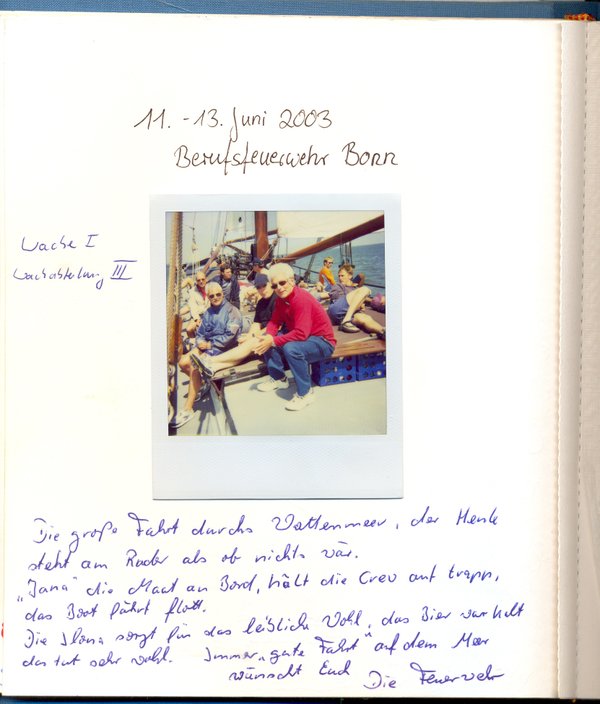 11. - 13. Juni 2003
Berufsfeuerwehr Bonn
Wache I
Wachabteilung III
Die große Fahrt durchs Wattenmeer, der Henk
steht am Ruder als ob nichts wär.
„Jana" die Maat an Bord, hält die Crew auf trapp,
das Boot fährt flott.
Die Ilona sorgt für das leibliche Wohl, das Bier war kalt
das tut sehr wohl. Immer „gute Fahrt" auf dem Meer
wünscht Euch Die Feuerwehr